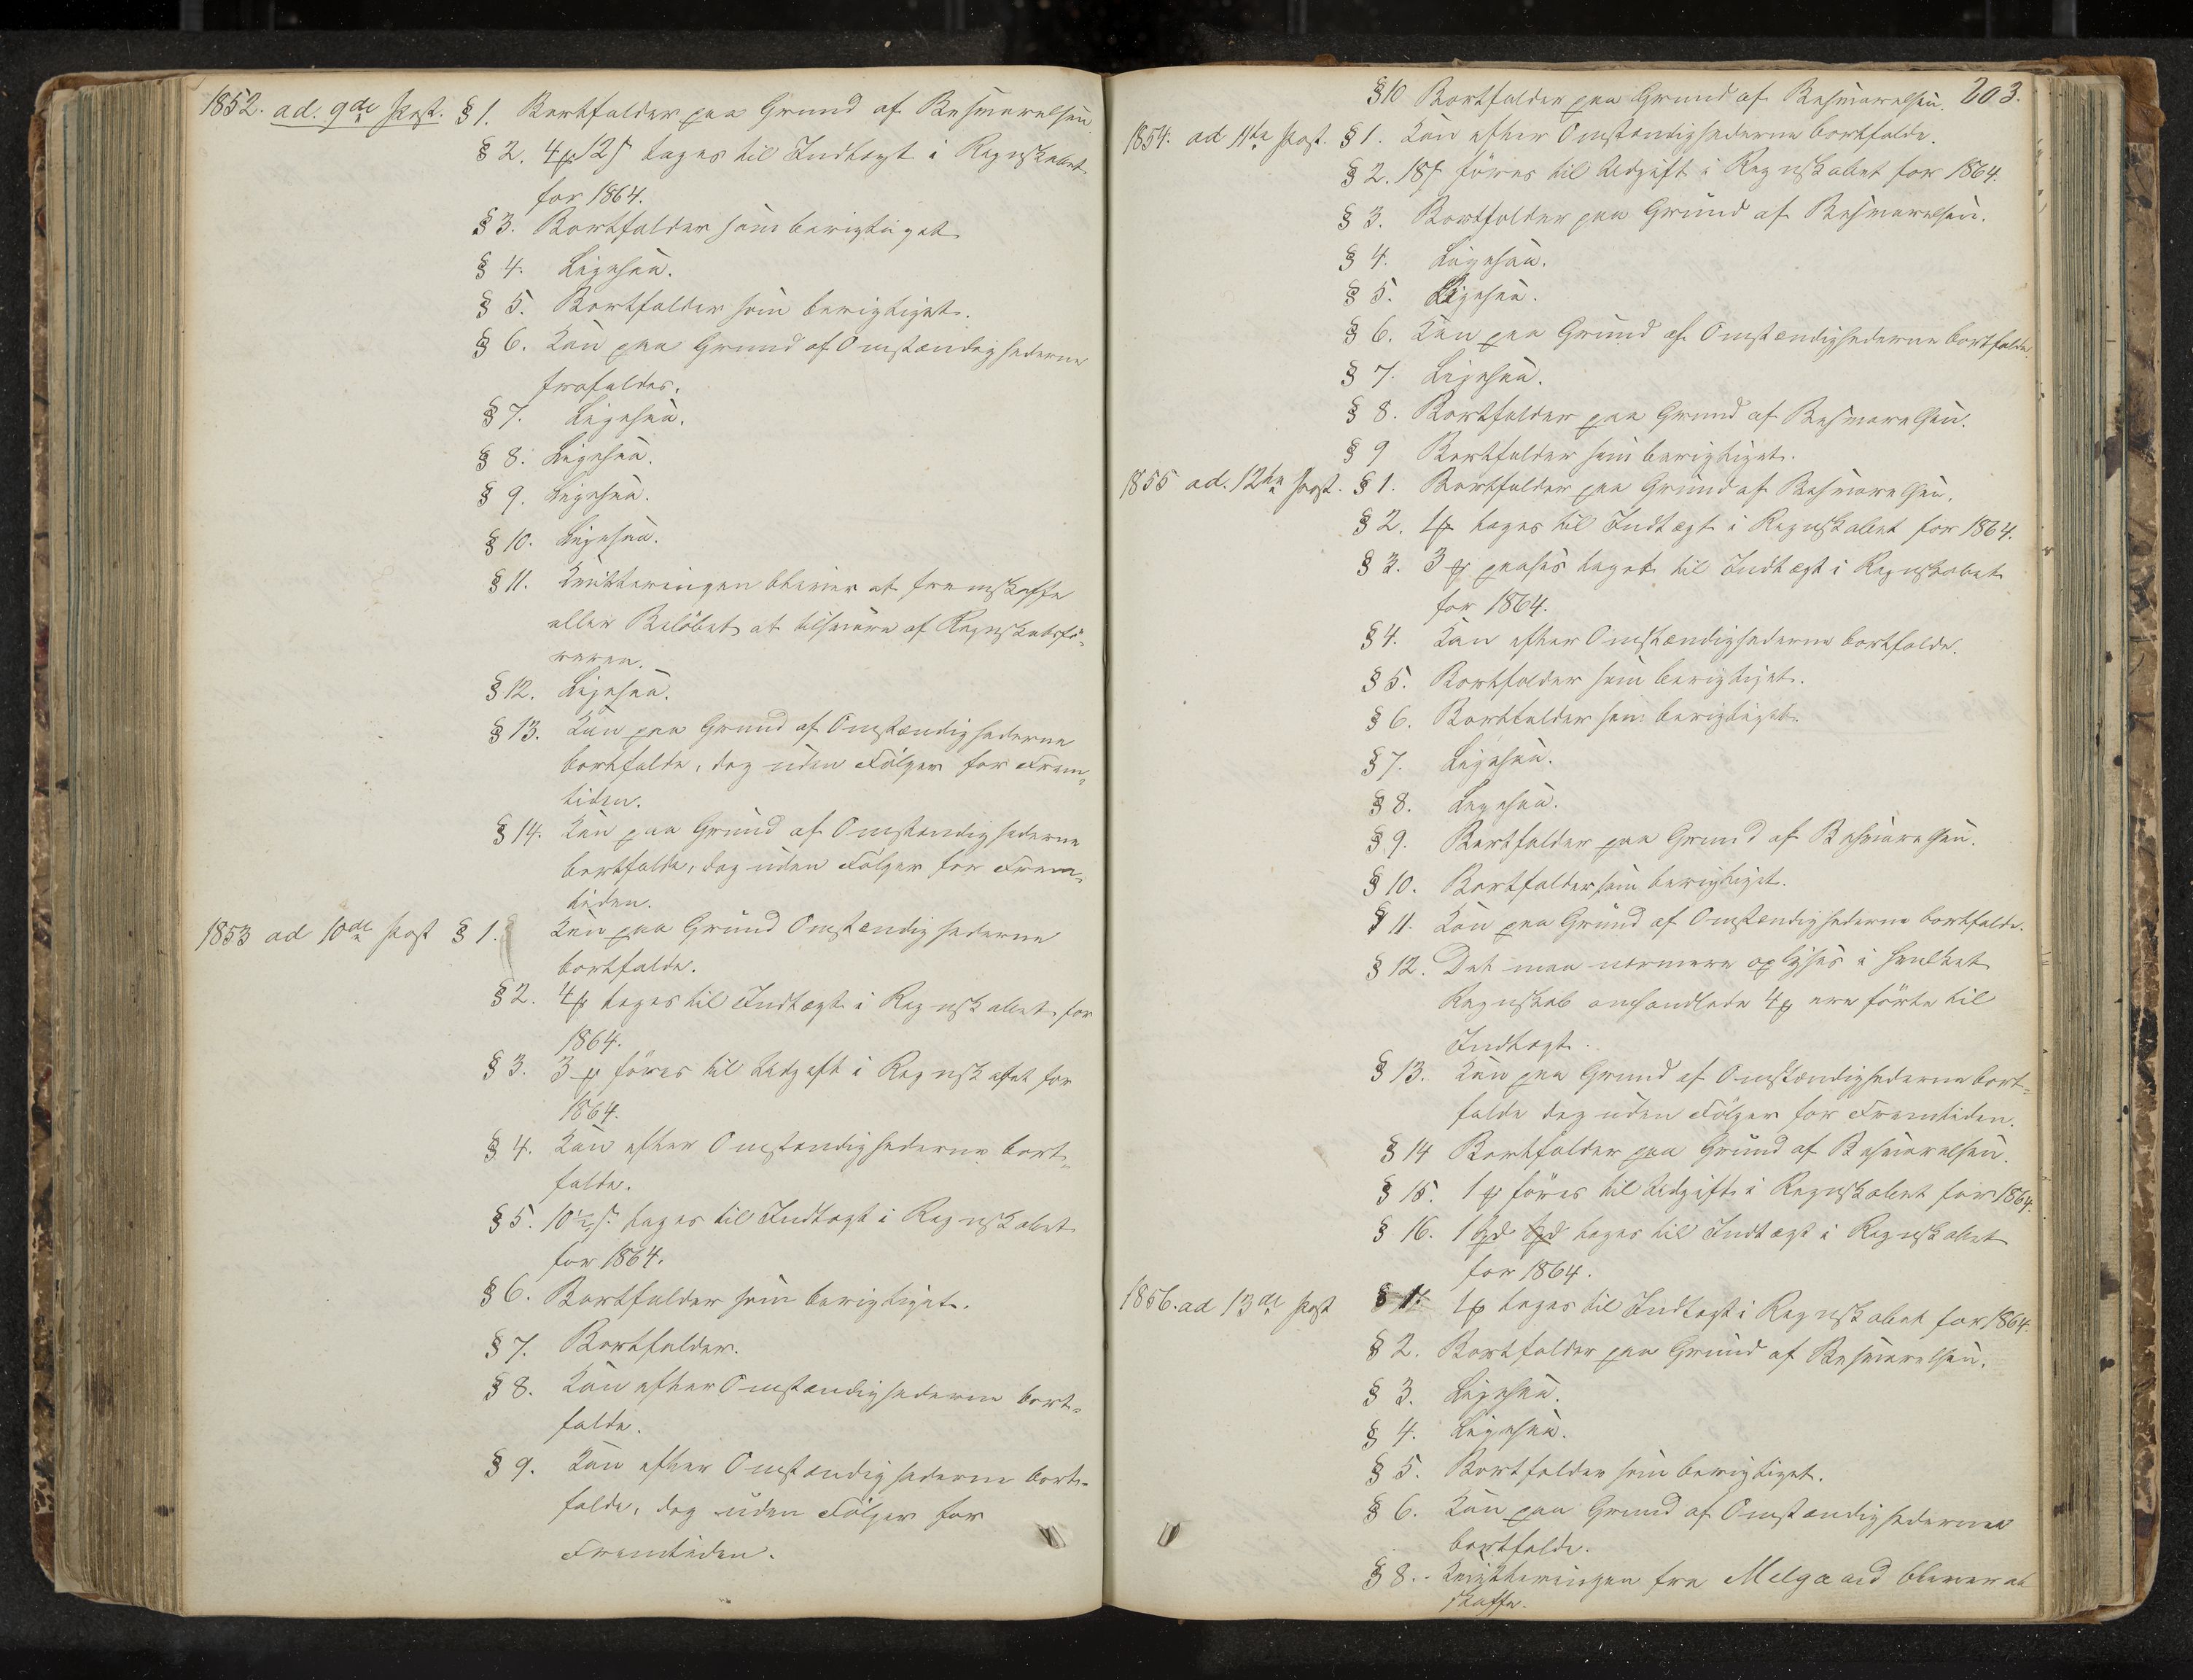 1852. ad. 9de Post. § 1. Bortfalder paa Grund af Besvarelsen.
§ 2. 4 ₰ 12 ß tages til Indtægt i Regnskabet
for 1864.
§ 3. Bortfalder som berigtiget.
§ 4. Ligesaa.
§ 5. Bortfalder som berigtiget.
§ 6. Kan paa Grund af Omstændighederne
frafaldes.
§ 7. Ligesaa.
§ 8. Ligesaa.
§ 9. Ligesaa.
§ 10. Ligesaa.
§ 11. Kvitteringen bliver at fremskaffe
eller Beløbet at tilsvare af Regnskabsfö-
reren.
§ 12. Ligesaa.
§ 13. Kan paa Grund af Omstændighederne
bortfalde, dog uden Fölger for Frem-
tiden.
§ 14. Kan paa Grund af Omstændighederne
bortfalde, dog uden Fölger for Frem-
tiden.
1853 ad 10de Post § 1. Kan paa Grund Omstændighederne
bortfalde.
§ 2. 4 ₰ tages til Indtægt i Regnskabet for
1864.
§ 3. 3 ₰ föres til Udgift i Regnskabet for
1864.
§ 4. Kan efter Omstændighederne bort-
falde.
§ 5. 10½ ß tages til Indtægt i Regnskabet
for 1864.
§ 6. Bortfalder som berigtiget.
§ 7. Bortfalder.
§ 8. Kan efter Omstændighederne bort-
falde.
§ 9. Kan efter Omstændighederne bort-
falde, dog uden Fölger for
Fremtiden.
203.
§ 10 Bortfalder paa Grund af Besvarelsen.
1854. ad 11te Post. § 1. Kan efter Omstændighederne bortfalde.
§ 2. 18 ß föres til Udgift i Regnskabet for 1864.
§ 3. Bortfalder paa Grund af Besvarelsen.
§ 4. Ligesaa.
§ 5. Ligesaa.
§ 6. Kan paa Grund af Omstændighederne bortfalde.
§ 7. Ligesaa.
§ 8. Bortfalder paa Grund af Besvarelsen.
§ 9 Bortfalder som berigtiget.
1855 ad. 12te Post. § 1. Bortfalder paa Grund af Besvarelsen.
§ 2. 1 ₰ tages til Indtægt i Regnskabet for 1864.
§ 3. 3 ₰ paases taget til Indtægt i Regnskabet
for 1864.
§ 4. Kan efter Omstændighederne bortfalde.
§ 5. Bortfalder som berigtiget.
§ 6. Bortfalder som berigtiget.
§ 7. Ligesaa.
§ 8. Ligesaa.
§ 9. Bortfalder paa Grund af Besvarelsen.
§ 10. Bortfalder som berigtiget.
§ 11. Kan paa Grund af Omstændighederne bortfalde.
§ 12. Det maa nærmere oplyses i hvilket
Regnskab omhandlede 4 ₰ ere förte til
Indtægt.
§ 13. Kan paa Grund af Omstændighederne bort-
falde dog uden Fölger for Fremtiden.
§ 14 Bortfalder paa Grund af Besvarelsen.
§ 15. 1 ₰ föres til Udgift i Regnskabet for 1864.
§ 16. 1 Spd Spd tages til Indtægt i Regnskabet
for 1864.
1856. ad 13de Post § 1. 1 ₰ tages til Indtægt i Regnskabet for 1864.
§ 2. Bortfalder paa Grund af Besvarelsen.
§ 3. Ligesaa.
§ 4. Ligesaa.
§ 5. Bortfalder som berigtiget.
§ 6. Kan paa Grund af Omstændighederne
bortfalde.
§ 8. Kvitteringen fra Melgaard bliver at
skaffe.